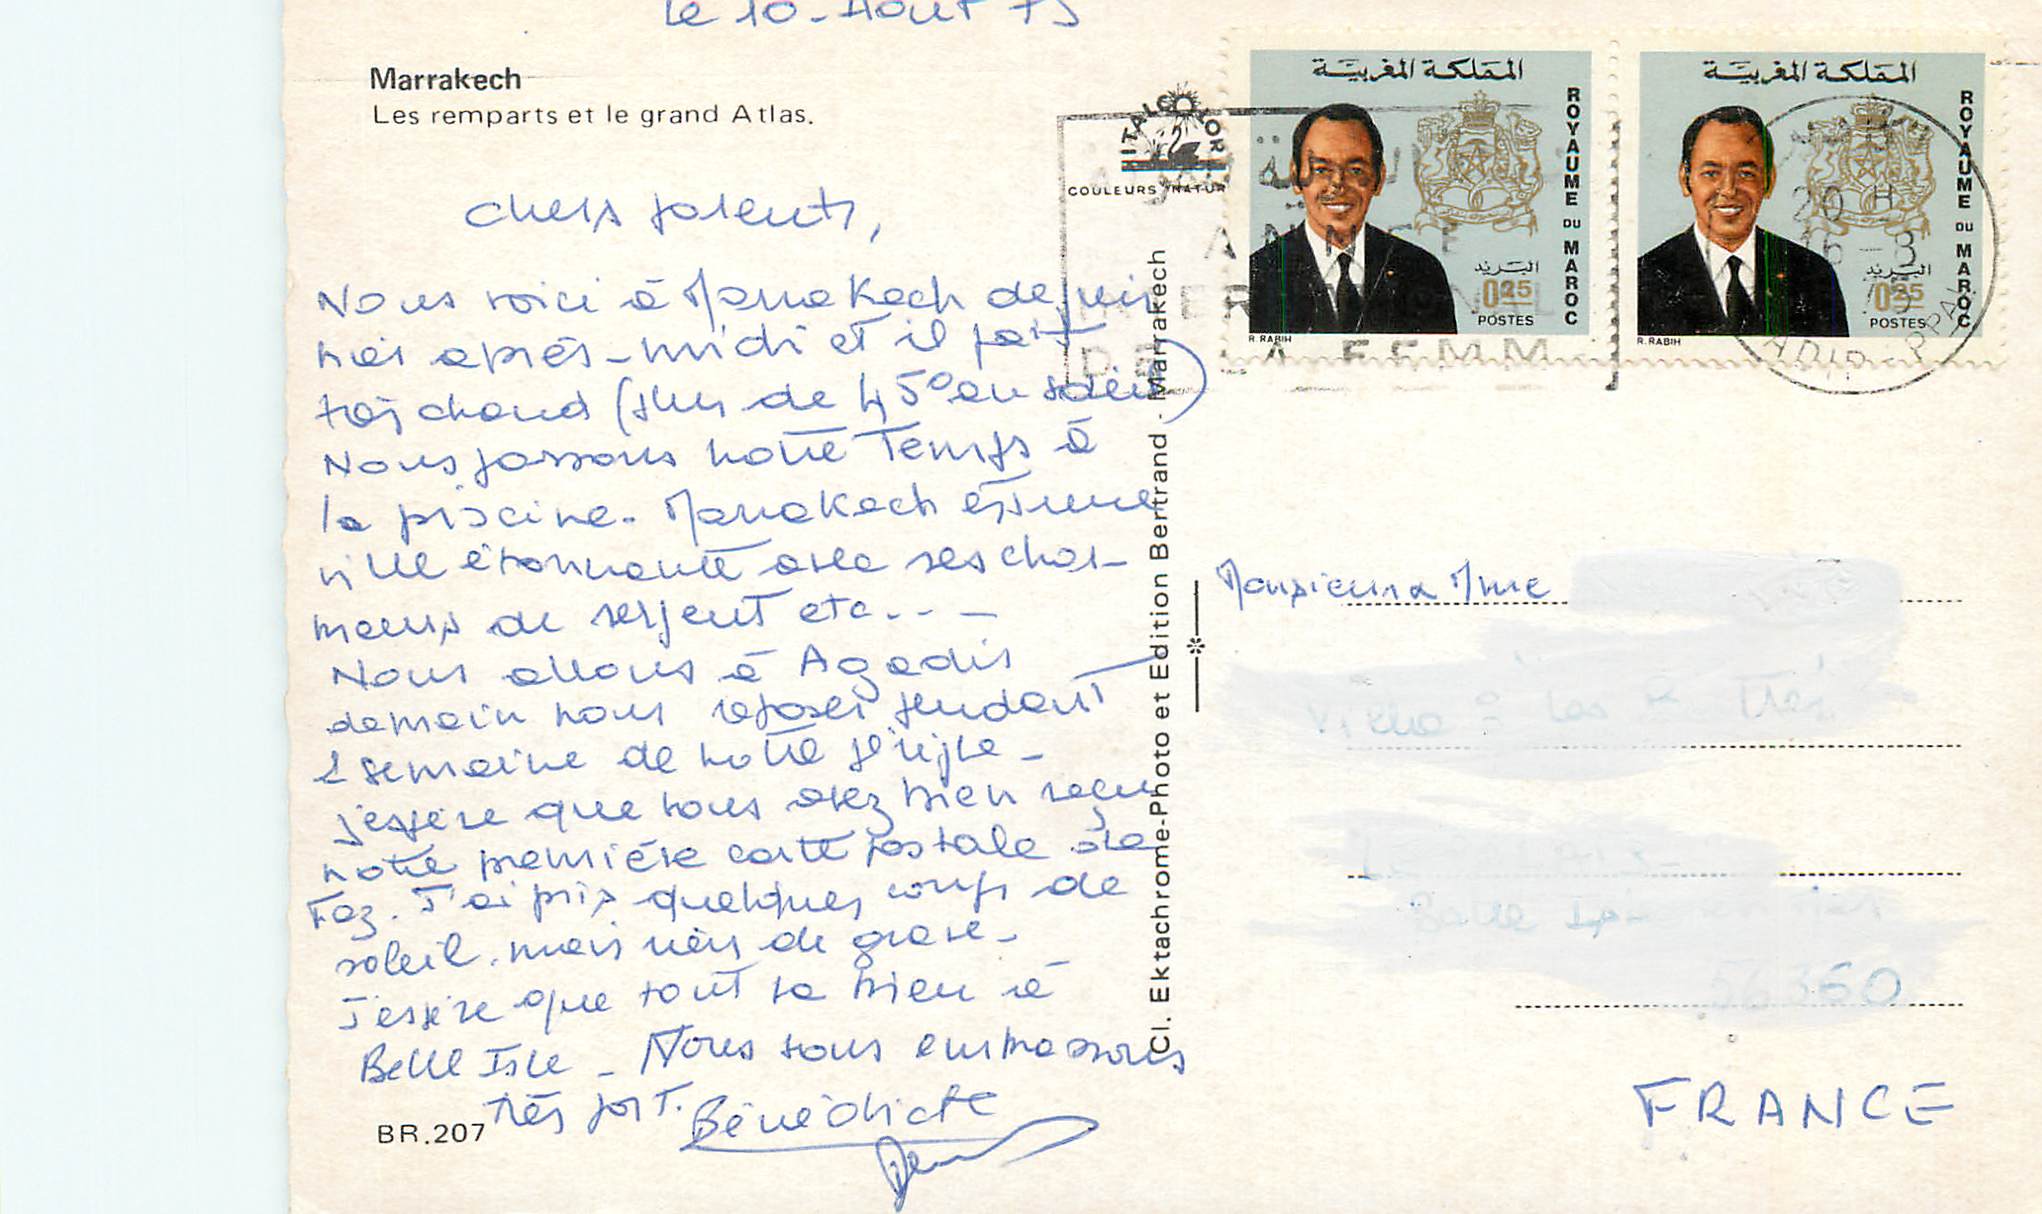 le 10 - Août 75
Marrakech
Les remparts et le grand Atlas.
chers parents,
Nous voici à Marrakech depuis
hier après-midi et il fait
très chaud (plus de 45° au soleil)
Nous passons notre temps à
la piscine. Marrakech est une
ville étonnante avec ses char-
meurs de serpent etc...
Nous allons à Agadir
demain nous reposer pendant
1 semaine de notre périple -
J'espère que vous avez bien reçu
notre première carte postale de
Fez. J'ai pris quelques coups de
soleil, mais rien de grave -
J'espère que tout va bien à
Belle Isle - Nous vous embrassons
très fort. Bénédicte
BR.207
ITALCOLOR
COULEURS NATUR
Cl. Ektachrome-Photo et Edition Bertrand - Marrakech
المملكة المغربية
ROYAUME DU MAROC
البريد
0,25
POSTES
R.RABIH
المملكة المغربية
ROYAUME DU MAROC
البريد
0,25
POSTES
R.RABIH
ANNEE
DE LA FEMM
20 H
16-8
Monsieur & Mme
56360
FRANCE